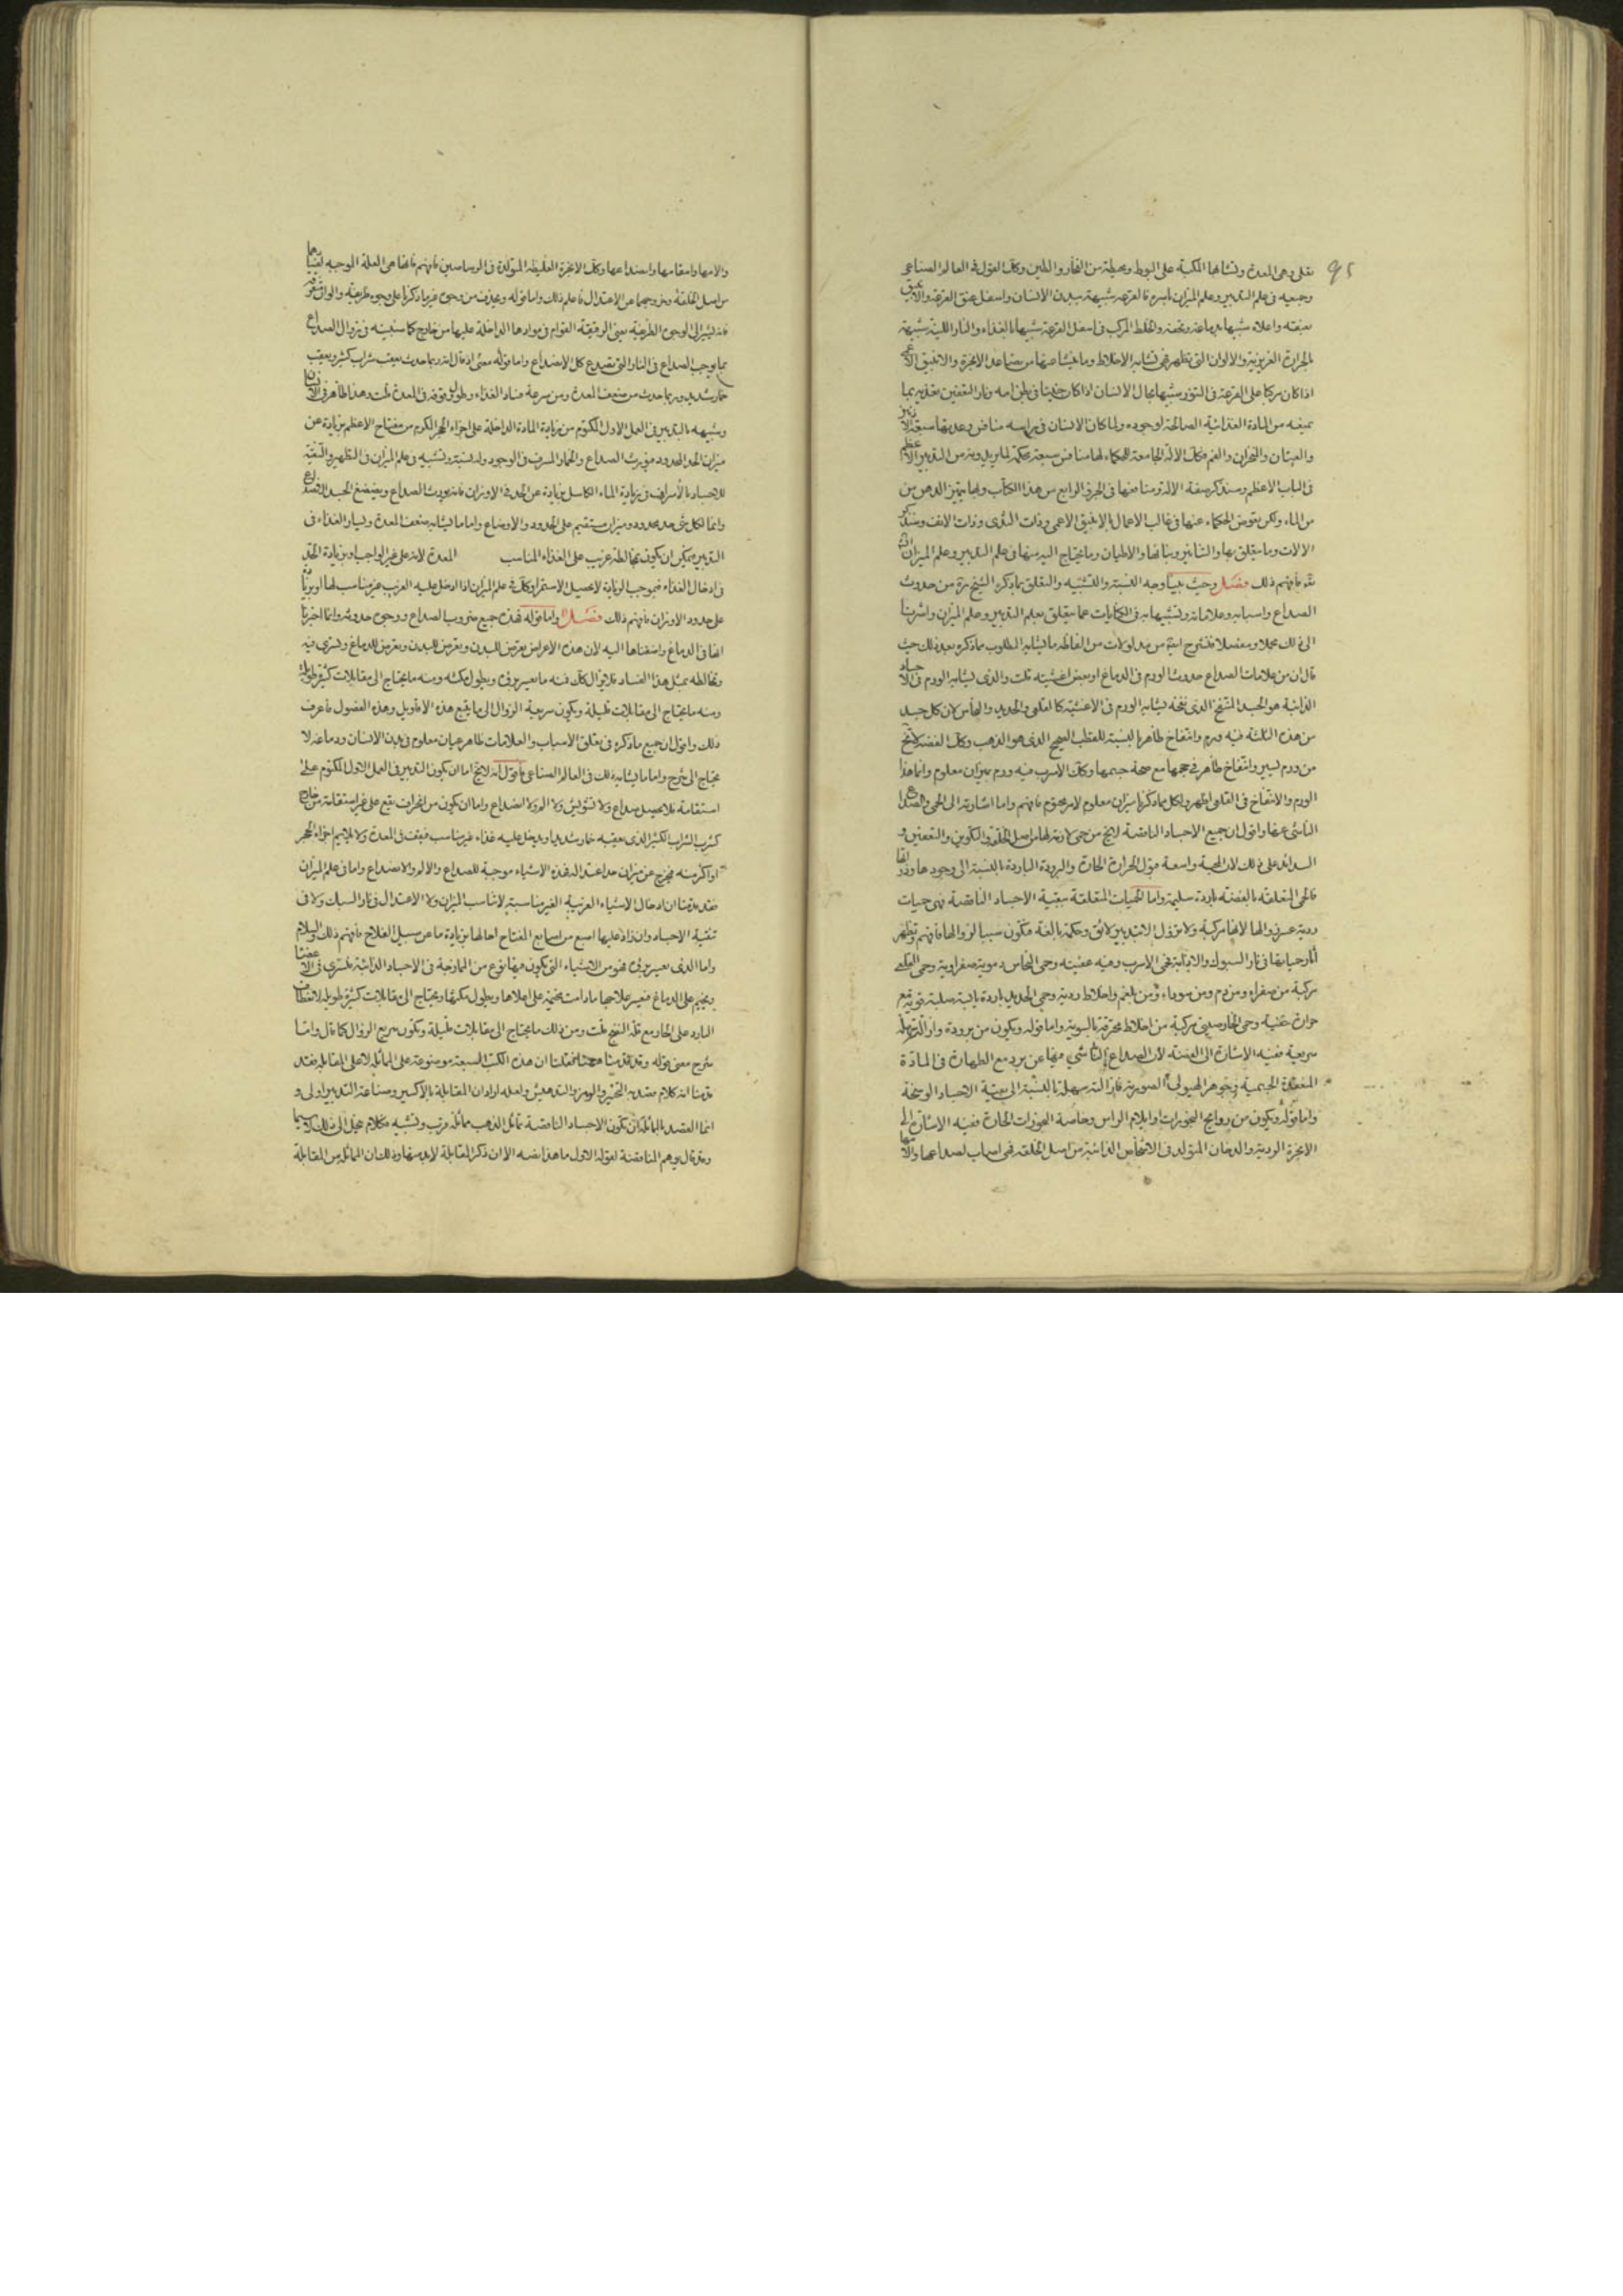 ٩٢
تغلى وهى المعدة وتشابهها المكبة على البوط ومحيطة من الفخار والطين وكذلك القول فى العالم الصناعى
وجميعه فى علم التدبير وعلم الميزان باسره فالقرعة شبيهة ببدن الانسان واسفل عنق القرعة والانبيق
بعنقه واعلاه شبيها بدماغه والخلط المركب فى اسفل القرعة شبيها بالغذاء والنار اللينة شبيهة
بالحرارة الغريزية والالوان التى تظهر فهى تشابه الاخلاط وما ينشا عنها من تصاعد الابخرة والانبيق الاعمى
اذا كان مركبا على القرعة فى التنور شبيها بحال الانسان اذا كان جنينا فى بطن امه ونار التعفين تغذيه بما
من المادة الغذائية الصالحة لوجوده ولما كان الانسان فى راسه منافس وعدتها سبعة الاذنين
والعينان والمنخران والفم فكذلك الالة الجامعة للحكماء لها منافس سبعة محكمة لما يريدونه من التدبير الاعظم
فى الباب الاعظم وسنذكر صفة الالة ومنافعها فى الجزء الرابع من هذا الكتاب وبها يتميز الدهن من
من الماء ولكن يعوض الحكماء عنها فى غالب الاعمال الانبيق الاعمى وذات الثدى وذات الانف وسنذكر
الالات وما يتعلق بها والتنانير وبنائها والاطيان وما يحتاج اليه منها فى علم التدبير وعلم الميزان ان شاء
الله فافهم ذلك فصل وحيث بينا وجه النسبة والتشبيه والتعلق بما ذكره الشيخ من حدوث
الصداع واسبابه وعلاماته وتشبيهاته فى الكنايات عما يتعلق بعلم التدبير وعلم الميزان واشرنا
الى ذلك مجملا ومفصلا فنشرح من مدلولات من الفاظه ما يشابه المطلوب مما ذكره بعد ذلك حيث
قال ان من علامات الصداع حدوث الورم فى الدماغ او بعض اغشيته قلت والذى يشابه الورم فى الاجساد
الذائبة هو الجسد المنتفخ الذى نفخه يشابه الورم فى الاغشية كالقلعى والحديد والنحاس لان كل جسد
من هذه الثلثة فيه ورم وانتفاخ ظاهر بالنسبة للقطب الصحيح الذى هو الذهب وكذلك الفضة لا تخ
من ورم يسير وانتفاخ ظاهر فى حجمها مع صحة جسمها وكذلك الاسرب فيه ورم بميزان معلوم وانما هذا
الورم والانتفاخ فى القلعى اظهر ولكل مما ذكرنا ميزان معلوم لامر محتوم فافهم واما اشارته الى الحمى والصداع
الناشى عنها واقول ان جميع الاجساد الناقصة لا يخ من حمى لازمة لها من اصل الخلقة والتكوين والتعفين و
على ذلك لان المحبة واسعة الحرارة الحادة والبرودة الباردة بالنسبة الى وجودها
فالحمى المتعلقة بالفضة باردة سليمة واما الحميات المتعلقة ببقية الاجساد الناقصة فهى حميات
ردية عسر زوالها لانها مركبة ولا تزول الا بتدبير لائق وحكمة بالغة فتكون سببا لزوالها فافهم وتظهر
اثار حمياتها فى نار السبوك والاذابة فحمى الاسرب وفيه عفنية وحمى النحاس دموية صفراوية وحمى القلعى
مركبة من صفراء ومن دم ومن سوداء ومن بلغم واخلاط ردية وحمى الحديد باردة يابسة صلبة قوية مع
حرارة خفية وحمى الخارصينى مركبة من اخلاط محترقة بالسوية واما قوله ويكون من برودة وازالته سهلة
سريعة ففيه الاشارة الى الفضة لان الصداع الناشى فيها عن برد مع الطهارة فى المادة
المنعقدة الجسمية وجوهر الهيولى الصورية فازالته سهلة بالنسبة الى بقية الاجساد الوسخة
واما قوله ويكون من روايح البخورات وايلام الراس وخاصة البخورات الحارة ففيه الاشارة الى
الابخرة الردية والدخان المتولد فى الانحاس الذائبة من اصل الخلقة فهى اسباب لصداعها والامها
والامها واسقامها واستداعها وكذلك الابخرة الغليظة المتولدة فى الرصاصين فافهم فانها هى العلة الموجبة لفسادهما
من اصل الخلقة وخروجهما عن الاعتدال فاعلم ذلك واما قوله ويحدث من وجوه غير ما ذكرنا على وجوه طريفة والوان
فانه يشير الى الوجوه الطريفة يعنى الرفيعة القوام فى موادها الداخلة عليها من خارج كما سنبينه فى زوال الصداع
بما يوجب الصداع فى النار التى تصدع كل الانصداع واما قوله معنى اذ قال انه ربما حدث بعقب شراب كثير وبعقب
خمار شديد وربما حدث من ضعف المعدة ومن سرعة فساد الغذاء وطول وقوفه فى المعدة قلت وهذا ظاهر فى الانسان
وشبيهه بالتدبير فى العمل الاول المكتوم من زيادة المادة الداخلة على اجزاء الحجر المكرم من مفتاح الاعظم بزيادة عن
ميزان الحد المحدود فيورث الصداع والخمار المسرف فى الوجود وله نسبة وتشبيه فى علم الميزان فى التطهير والتنقية
للاجساد بالاسراف فى زيادة الماء الكامل بزيادة عن الحد فى الاوزان فانه يورث الصداع ويضعضع الجسد
وانما لكل شئ حد محدود وميزان مستقيم على الحدود والاوضاع واما ما يشابه ضعف المعدة وفساد الغذاء فى
التدبير فيمكن ان يكون بمخالطة غريب على الغذاء المناسب المعدة لانه على غير الواجب او بزيادة الحد
فى ادخال الغذاء فبموجب الزيادة لا يحصل الاستمراء وكذلك فى علم الميزان اذا ادخل عليه الغريب غير مناسب لها او بزيادة
على حدود الاوزان فافهم ذلك فصل واما قوله فهذه جميع ضروب الصداع ووجوه حدوثه وانما اخبرنا
انها فى الدماغ واضفناها اليه لان هذه الاعراض تعرض للبدن وتعرض للبدن وتعرض للدماغ وتسرى فيه
وتخالطه بمثل هذا الفساد فلا يزال كذلك فمنه ما يعسر برؤه ويطول مكثه ومنه ما يحتاج الى مقابلات كثيرة طويلة
ومنه ما يحتاج الى مقابلات قليلة ويكون سريعة الزوال الى ما يتبع هذه الاقاويل وهذه الفصول فاعرف
ذلك واقول ان جميع ما ذكره فى تعلق الاسباب والعلامات ظاهر عيان معلوم فى بدن الانسان ودماغه لا
يحتاج الى شرح واما ما يشابه ذلك فى العالم الصناعى فاقول انه لا يخ اما ان يكون التدبير فى العمل الاول المكتوم على
استقامة فلا يحصل صداع ولا تشويش ولا الم ولا انصداع واما ان يكون من انحراف يقع على غير استقامة من خارج
كشرب الشراب الكثير الذى يعقبه خمار شديد او يدخل عليه غذاء غير مناسب فيقف فى المعدة ولا يلايم اجزاء الحجر
او اكثر منه فيخرج عن ميزان حد اعتداله فهذه الاشياء موجبة للصداع والالم والانصداع واما فى علم الميزان
فقد قدمنا ان ادخال الاشياء الغريبة الغير مناسبة لا تناسب الميزان ولا الاعتدال فى نار السبك ولا فى
تنقية الاجساد وان زاد عليها اصبع من اصابع المفتاح احالها بزيادة ما عن سبيل الفلاح فافهم ذلك والسلام
واما الذى يعسر برؤه فهو من الاشياء التى يكون فيها نوع من الممازجة فى الاجساد الذائبة فتسرى فى الاعضاء
ويخيم على الدماغ فيعسر علاجها ما دامت مخيمة على اعلاها ويطول مكثها ويحتاج الى مقابلات كثيرة طويلة
البارد على الحار مع قلة النضج قلت ومن ذلك ما يحتاج الى مقابلات قليلة ويكون سريع الزوال كما قال واما
شرح معنى قوله وقد قدمنا هيهنا فقلنا ان هذه الكتب السبعة موضوعة على المماثلة لا على المقابلة فقد
قدمنا انه كلام مقصد به التحيير والرمز والتدهيش ولعله اراد ان المقابلة بالاكسير وصناعة التدبير اولى و
انما القصد بالمماثلة ان يكون الاجساد الناقصة تماثل الذهب مماثلة قرب وتشبيه فكلام محيل الى ذلك لا سيما
وقد قال يوهم المناقضة لقوله الاول ما هذا نصه الا ان ذكر المقابلة لا بد منها وذلك ان المماثلة من المقابلة